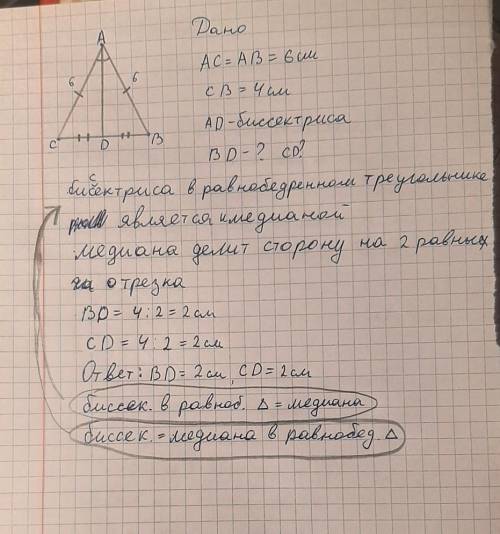 Дано
A
AC = AB = 6 см
6 6
CB = 4 см
AD - биссектриса
C D B
BD - ? CD?
с
биссектриса в равнобедренном треугольнике
является и медианой
медиана делит сторону на 2 равных
отрезка
BD = 4 : 2 = 2 см
CD = 4 : 2 = 2 см
Ответ: BD = 2 см, CD = 2 см
биссек. в равноб. Δ = медиана
биссек. = медиана в равнобед. Δ